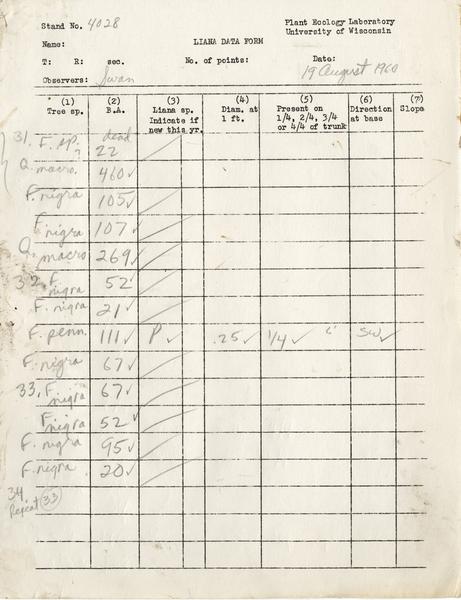 Stand No. 4028
Plant Ecology Laboratory
University of Wisconsin
Name:
LIANA DATA FORM
T: R: sec. No. of points: Date:
19 August 1960
Observers: Swan
(1) (2) (3) (4) (5) (6) (7)
Tree sp. B.A. Liana sp. Indicate if new this yr. Diam. at 1 ft. Present on 1/4, 2/4, 3/4 or 4/4 of trunk Direction at base Slope
31. F. sp. ? dead 22
Q. macro. 460 ✓
F. nigra 105 ✓
F. nigra 107 ✓
Q. macro 269 ✓
32. F. nigra 52
F. nigra 21 ✓
F. penn. 111 ✓ P ✓ .25 ✓ 1/4 ✓ SW ✓
F. nigra 67 ✓
33. F. nigra 67 ✓
F. nigra 52 ✓
F. nigra 95 ✓
F. nigra 20 ✓
34
Repeat 33